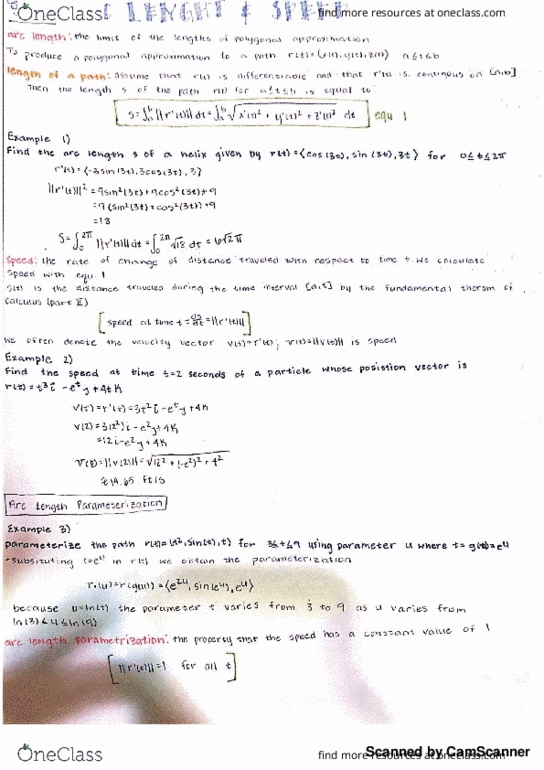 OneClass
find more resources at oneclass.com
C LENGHT & SPEED
arc length: the limit of the lengths of polygonal approximation
To produce a polygonal approximation to a path r(t)=(x(t), y(t), z(t)) a≤t≤b
length of a path: assume that r(t) is differentiable and that r'(t) is continous on [a,b]
Then the length s of the path r(t) for a≤t≤b is equal to
S=∫ₐᵇ ||r'(t)|| dt=∫ₐᵇ √x'(t)² + y'(t)² + z'(t)² dt equ 1
Example 1)
Find the arc length s of a helix given by r(t)=⟨cos(3t), sin(3t), 3t⟩ for 0≤t≤2π
r'(t)=⟨-3sin(3t), 3cos(3t), 3⟩
||r'(t)||²=9sin²(3t)+9cos²(3t)+9
=9(sin²(3t)+cos²(3t))+9
=18
S=∫₀²π ||r'(t)|| dt=∫₀²π √18 dt=6√2π
Speed: the rate of change of distance traveled with respect to time t. We calculate
speed with equ. 1
s(t) is the distance traveled during the time interval [a,t] by the fundamental therom of
calculus (part II)
[speed at time t=ds/dt=||r'(t)||]
We often denote the velocity vector v(t)=r'(t); v(t)=||v(t)|| is speed
Example 2)
Find the speed at time t=2 seconds of a particle whose position vector is
r(t)=t³i-eᵗj+4tk
v(t)=r'(t)=3t²i-eᵗj+4k
v(2)=3(2²)i-e²j+4k
=12i-e²j+4k
v(2)=||v(2)||=√12²+(-e²)²+4²
≈14.65 ft/s
Arc Length Parameterization
Example 3)
parameterize the path r(t)=(t², sin(t), t) for 3≤t≤9 using parameter u where t=g(u)=eᵘ
-substituting t=eᵘ in r(t) we obtain the parameterization
r₁(u)=r(g(u))=⟨e²ᵘ, sin(eᵘ), eᵘ⟩
because u=ln(t) the parameter t varies from 3 to 9 as u varies from
ln(3)≤u≤ln(9)
arc length parametrization: the property that the speed has a constant value of 1
[||r'(t)||=1 for all t]
OneClass
find more resources at oneclass.com
Scanned by CamScanner